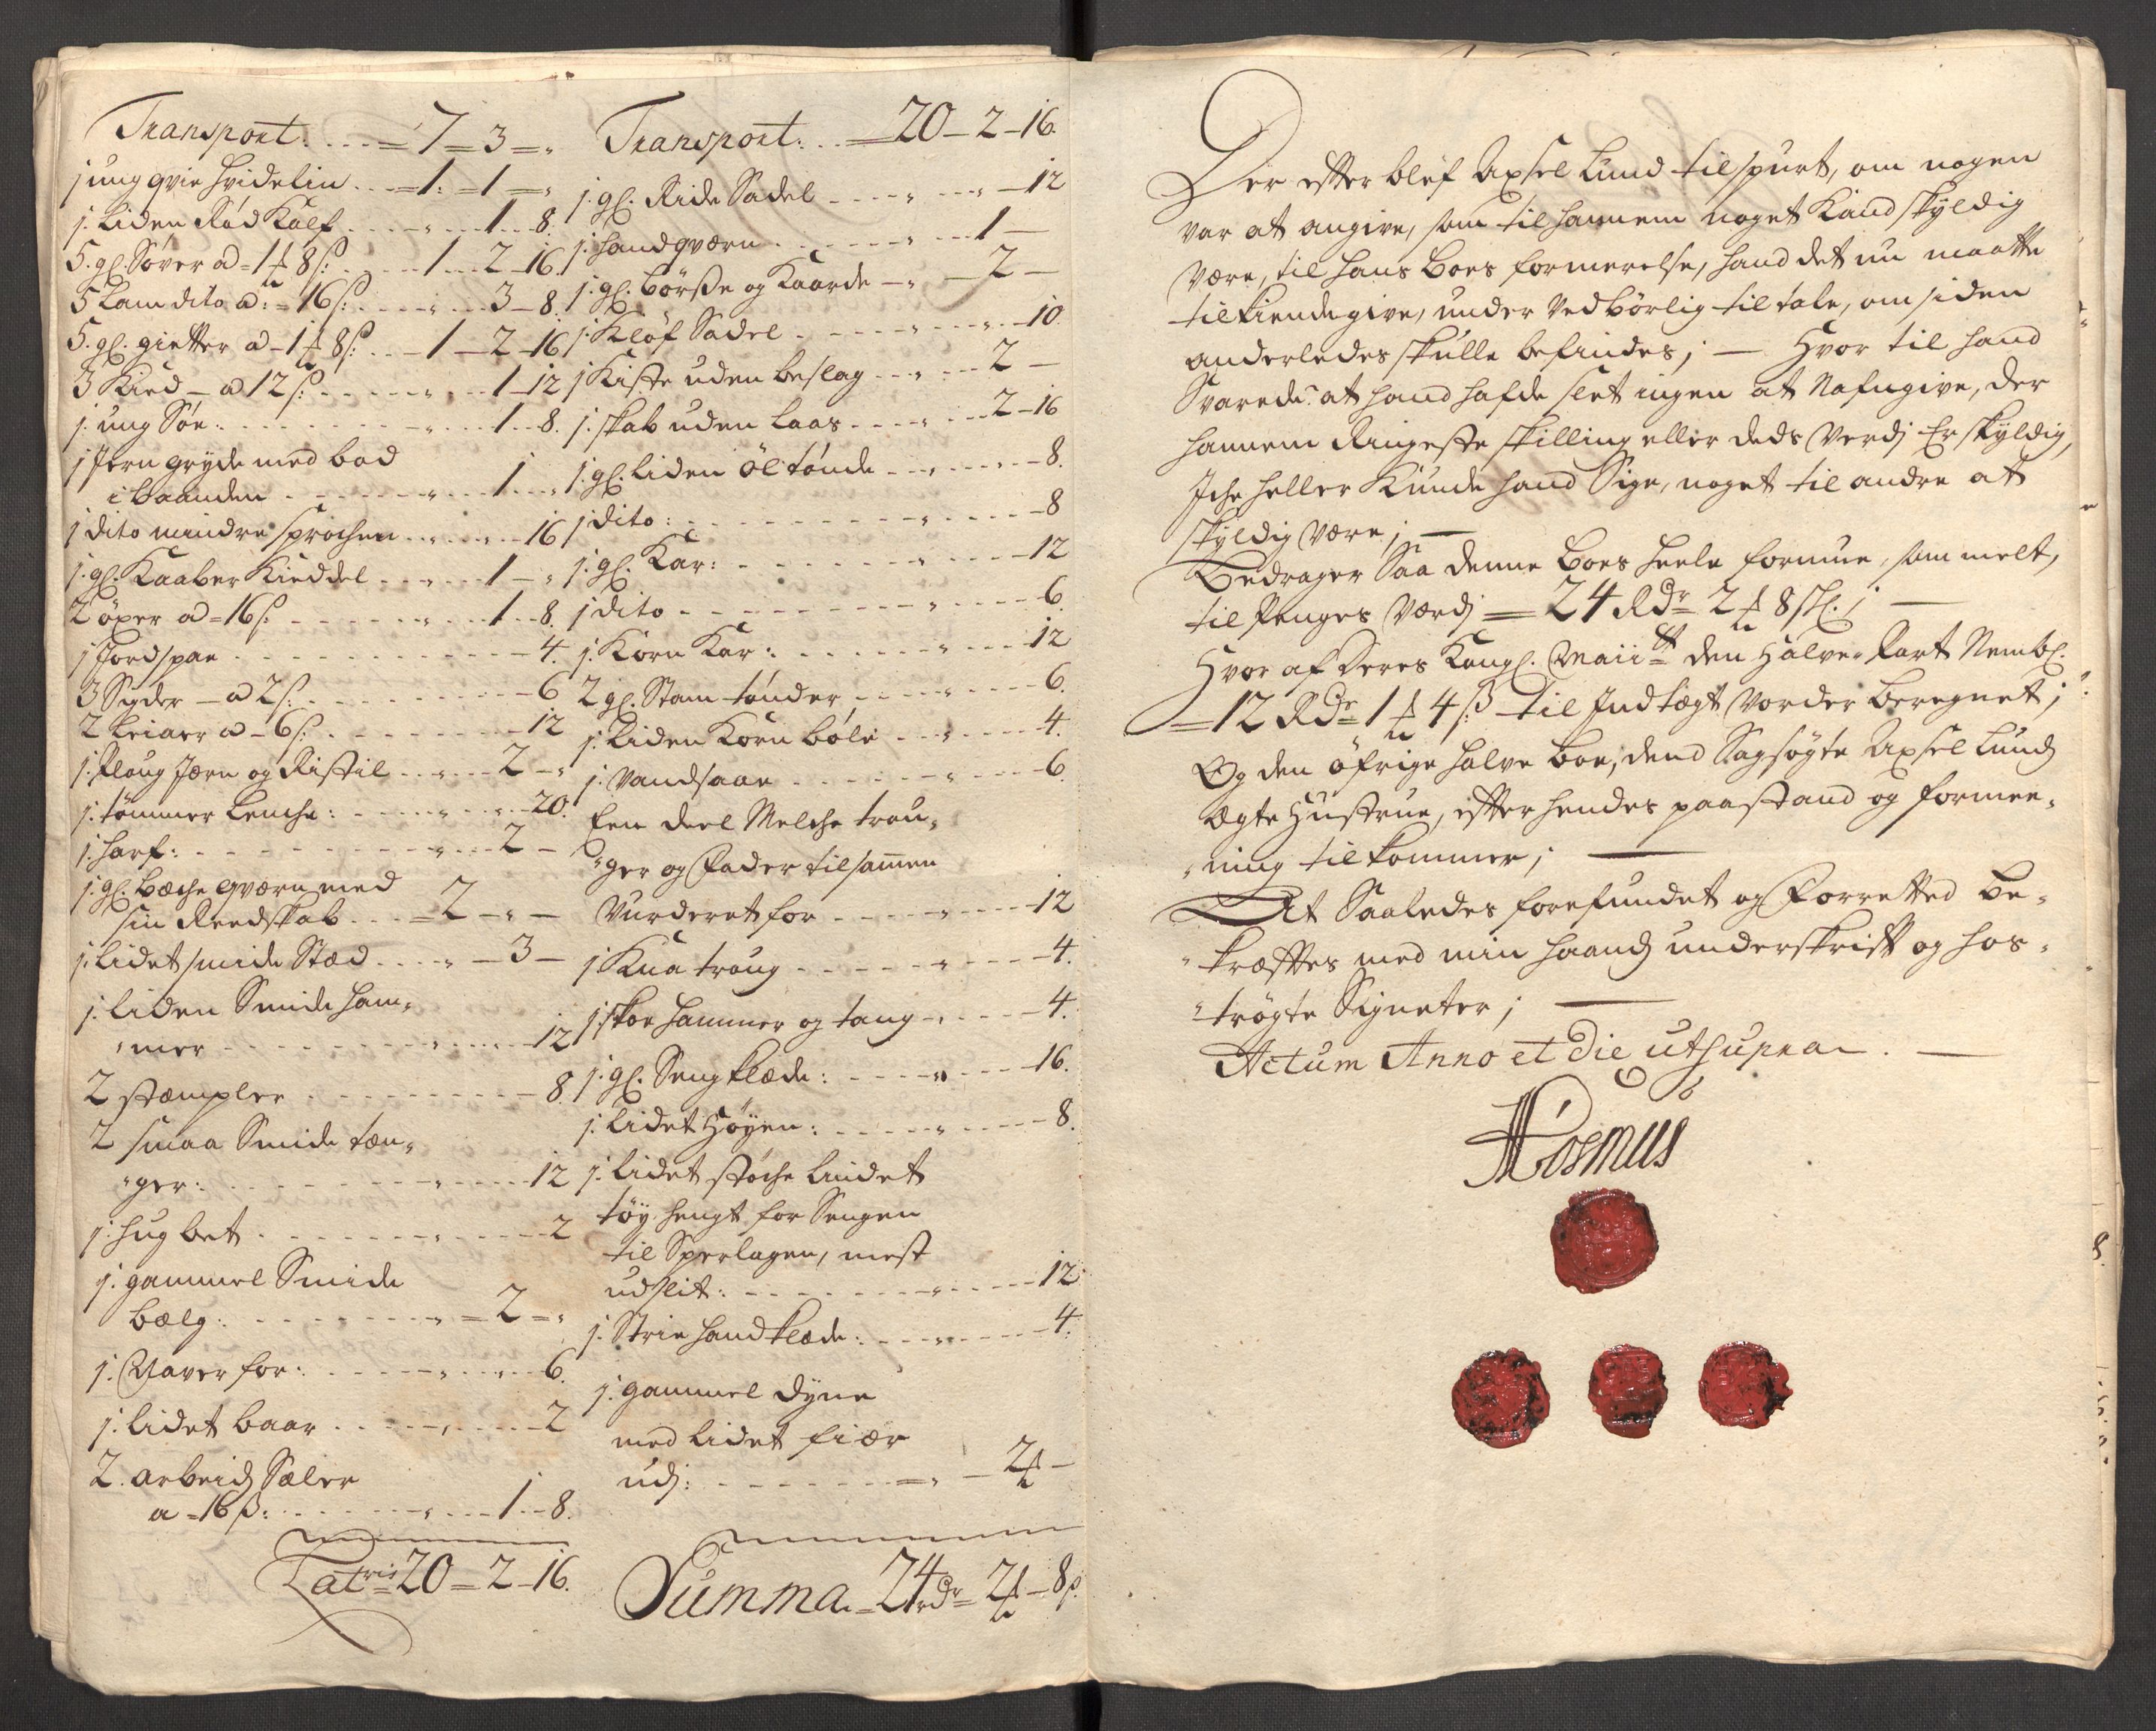 Transport: . . . = 7 = 3 = „
j ung qvie hvidelin . . . = 1: = 1 = „
j. liden Rød Kalf . . . „ . . 1 . . 8.
5. gl. Søver a = 1 ₰ 8 s: . . . 1 . . 2 - 16.
5 Lam dito a: = 16 s: . . . „ . . 3 - 8.
5. gl. gietter a - 1 ₰ 8 s: . . - 1 - 2 - 16
3 Kied - a 12 s: . . . „ . . 1 - 12
j. ung Søe: . . . „ . . 1 . . 8.
j Jern gryde med bod
i baanden . . . „ . . 1 . . „
j dito mindre sprochen . . „ . . „ . . 16
j. gl. Kaaber Kieddel . . „ . . 1 - „
2 öxer a = 16 s: . . . „ . . 1 . . 8.
j Jordspae . . . 4.
3 Sigder - a 2 s: . . . 6
2 Leiaer a - 6 s: . . . 12
j. Ploug Jærn og Ristil . . „ . . 2 - „
j. tömmer Lenche: . . . „ . . „ . . 20.
j. harf: . . . „ . . 2 -
j. gl. Bæche qværn med
sin Reedskab . . . = 2 - „ -
j. lidet smide Stæd . . . „ - 3 -
j. liden Smide ham„
„mer . . . „ . . „ . . 12
2 stempler . . . 8.
2 smaa Smide tæn„
„ger: . . . „ . . 12
j. hug bet . . . „ . . 2
j. gammel Smide
bælg: . . . „ = 2 = „
j. Naver for: . . . „ . . „ . . 6.
j. lidet baar . . . „ . . 2
2. arbeid Sæler
a = 16 β: . . . „ . . 1 . . 8.
Lat<sup>ris</sup> = 20 = 2 - 16.
Transport: . . = 20 - 2 - 16.
j. gl. Ride Sadel . . . „ . . „ - 12
j. handqværn . . . „ . . 1 -
j. gl. börsse og Kaarde - „ - 2 -
j Kløf Sadel . . . „ . . „ . . 10.
j Kiste uden beslag . . „ . . 2 -
j. skab uden laas . . . „ . . 2 - 16
j. gl. liden öltønde . . „ . . „ . . 8.
j dito: . . . „ . . 8
j. gl. Kar: . . . „ . . 12
j dito . . . „ . . 6.
j. Korn Kar: . . . „ . . 12
2 gl. Stam tønder . . . „ . . 6.
j. liden Korn böle . . . „ . . 4.
j. Vandsaae . . . „ . . 6.
Een deel Melche trou„
„ger og Fader tilsamen
Vurderet for . . . „ . . 12
j Kna troug . . . „ . . 4.
j. skoe hammer og tang . „ . . 4.
j. gl. Sengklæde: . . . „ . . 16.
j. lidet Høyen: . . . „ . . 8.
j. lidet støche lindet
tøy hengt for Sengen
til Sperlagen, mest
udslit: . . . „ . . 12.
j. Strie handklæde: . . . „ . . 4.
j. gammel dyne
med lidet fiær
udj: . . . = „ - 2 ₰ -
Summa. = 24 rdr = 2 ₰ - 8 β.
Der efter blef Axsel Lund tilspurt, om nogen
var at angive, som til hannem noget Kand skyldig
være, til hans boes formerelse, hand det nu maatte
tilkiendegive, under Vedbörlig tiltale, om siden
anderledes skulle befindes; — Hvor til hand
Svarede: at hand hafde slet ingen at Nafngive, der
hannem Ringeste skilling eller deds Verdj Er skyldig,
Iche heller Kunde hand Sige, noget til andre at
skyldig være; —
Bedrager Saa denne Boes heele formue, som melt,
til Penges Værdj = 24 Rdr 2 ₰ 8 sl. ; —
Hvor af Deres Kongl. Maiist den Halve Part Nembl.
= 12 Rdr 1 ₰ 4 β: til Indtægt vorder beregnet;
Og den öfrige halve boe, dend Sagsøgte Axsel Lunds
Ægte Hustrue, efter hendes paastand og formee„
„ning tilkommer; —
At Saaledes forefundet og Forretted be„
„kræftes med min haands underskrift og hos„
„trøgte Signeter; —
Actum Anno et Die ut supra. —
Aosmus